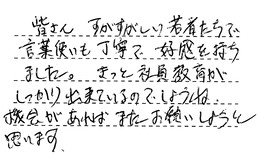 皆さん すがすがしい若者たちで
言葉使いも丁寧で 好感を持ち
ました。きっと社員教育が
しっかり出来ているのでしょうね。
機会があれば またお願いしようと
思います